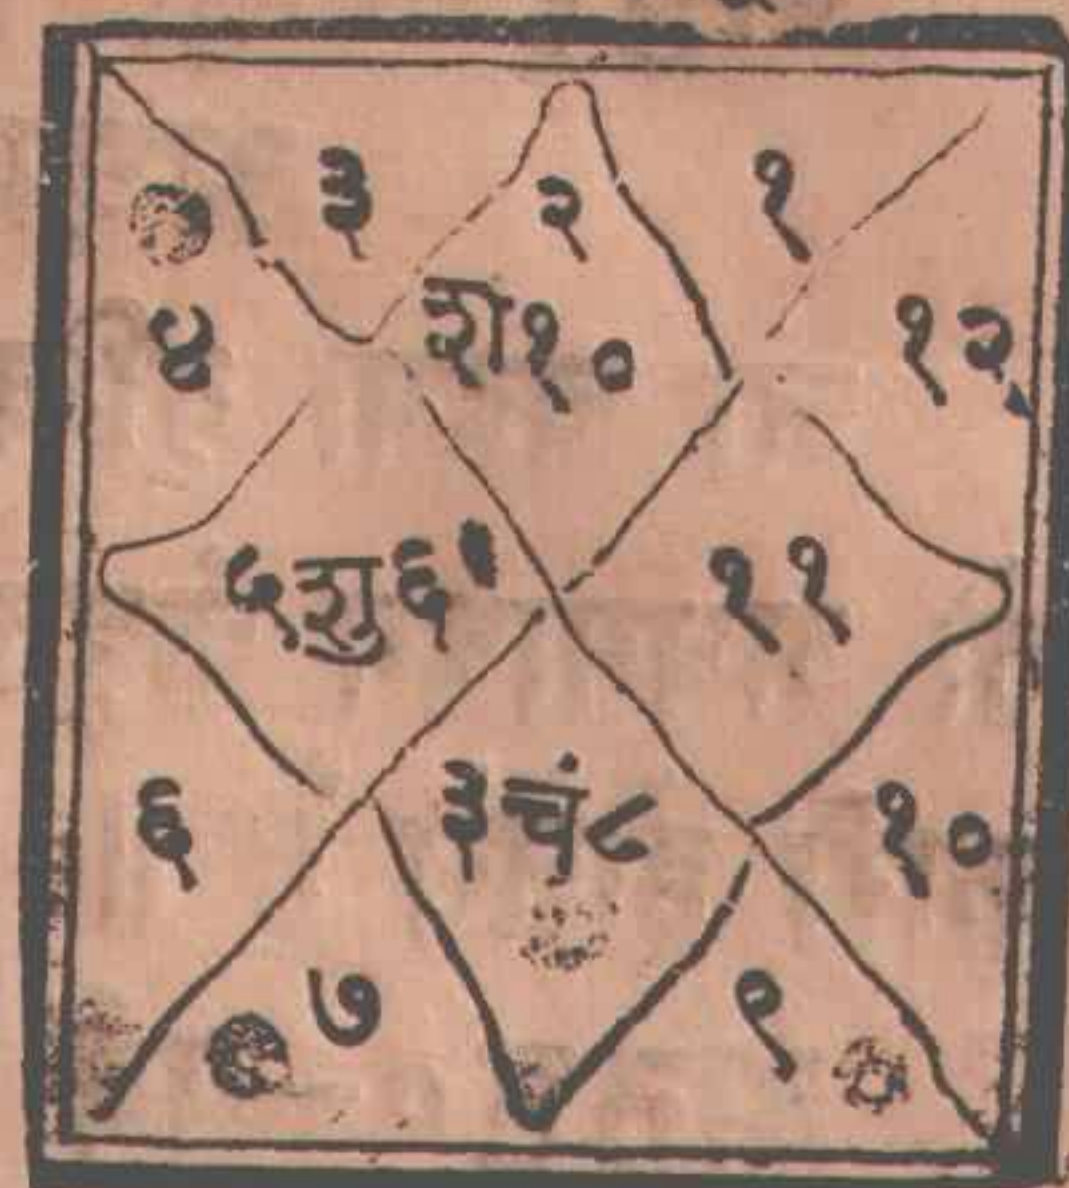 ३ २ १
४ श१० १२
५ शु६ ११
६ ३ चं८ १०
७ ९